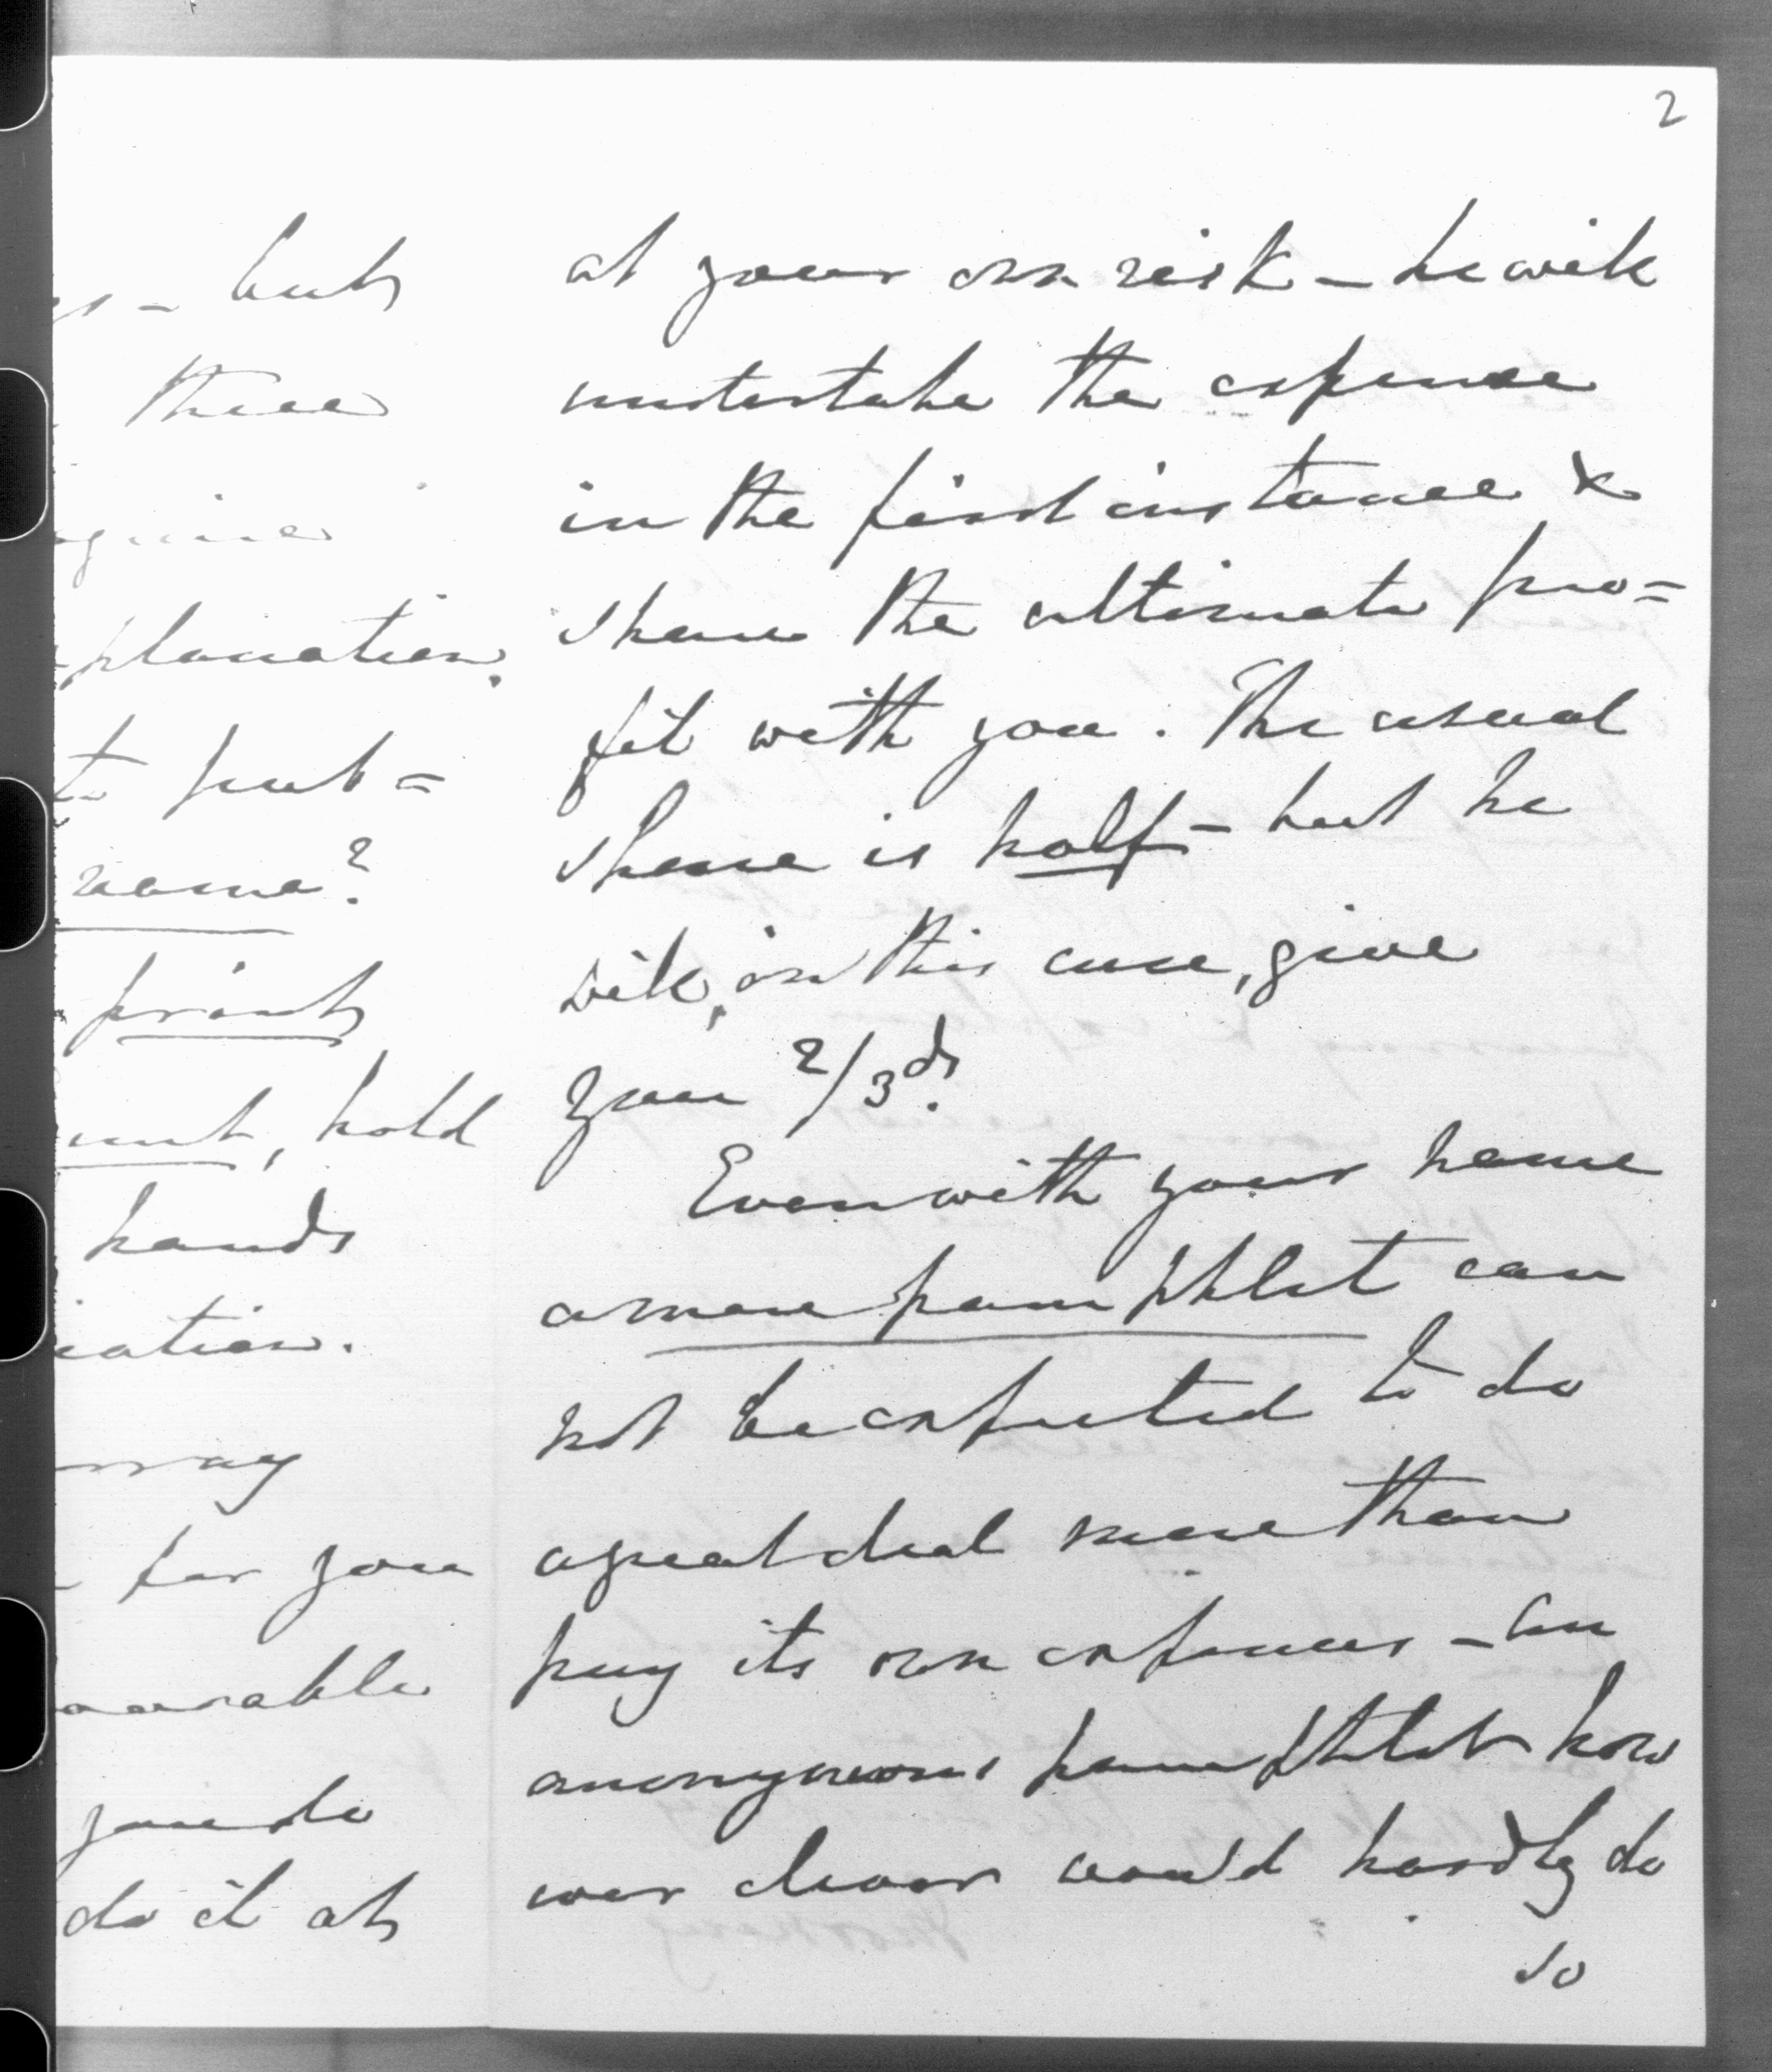 2
- but
three
planation.
to pub=
name?
print
hold
hands
ication.
way
- for you
you do
do it at
at your own risk - he will
undertake the expense
in the first instance &
share the ultimate pro=
fit with you. The usual
share is half - but he
will, in this case, give
you 2/3ds.
Even with your name
a mere pamphlet can
not be expected to do
a great deal more than
pay its own expenses - an
anonymous pamphlet how
ever clever would hardly do
so